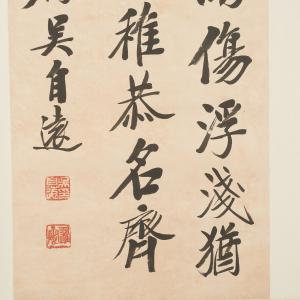 傷浮淺猶
稚恭名齊
吳自遠